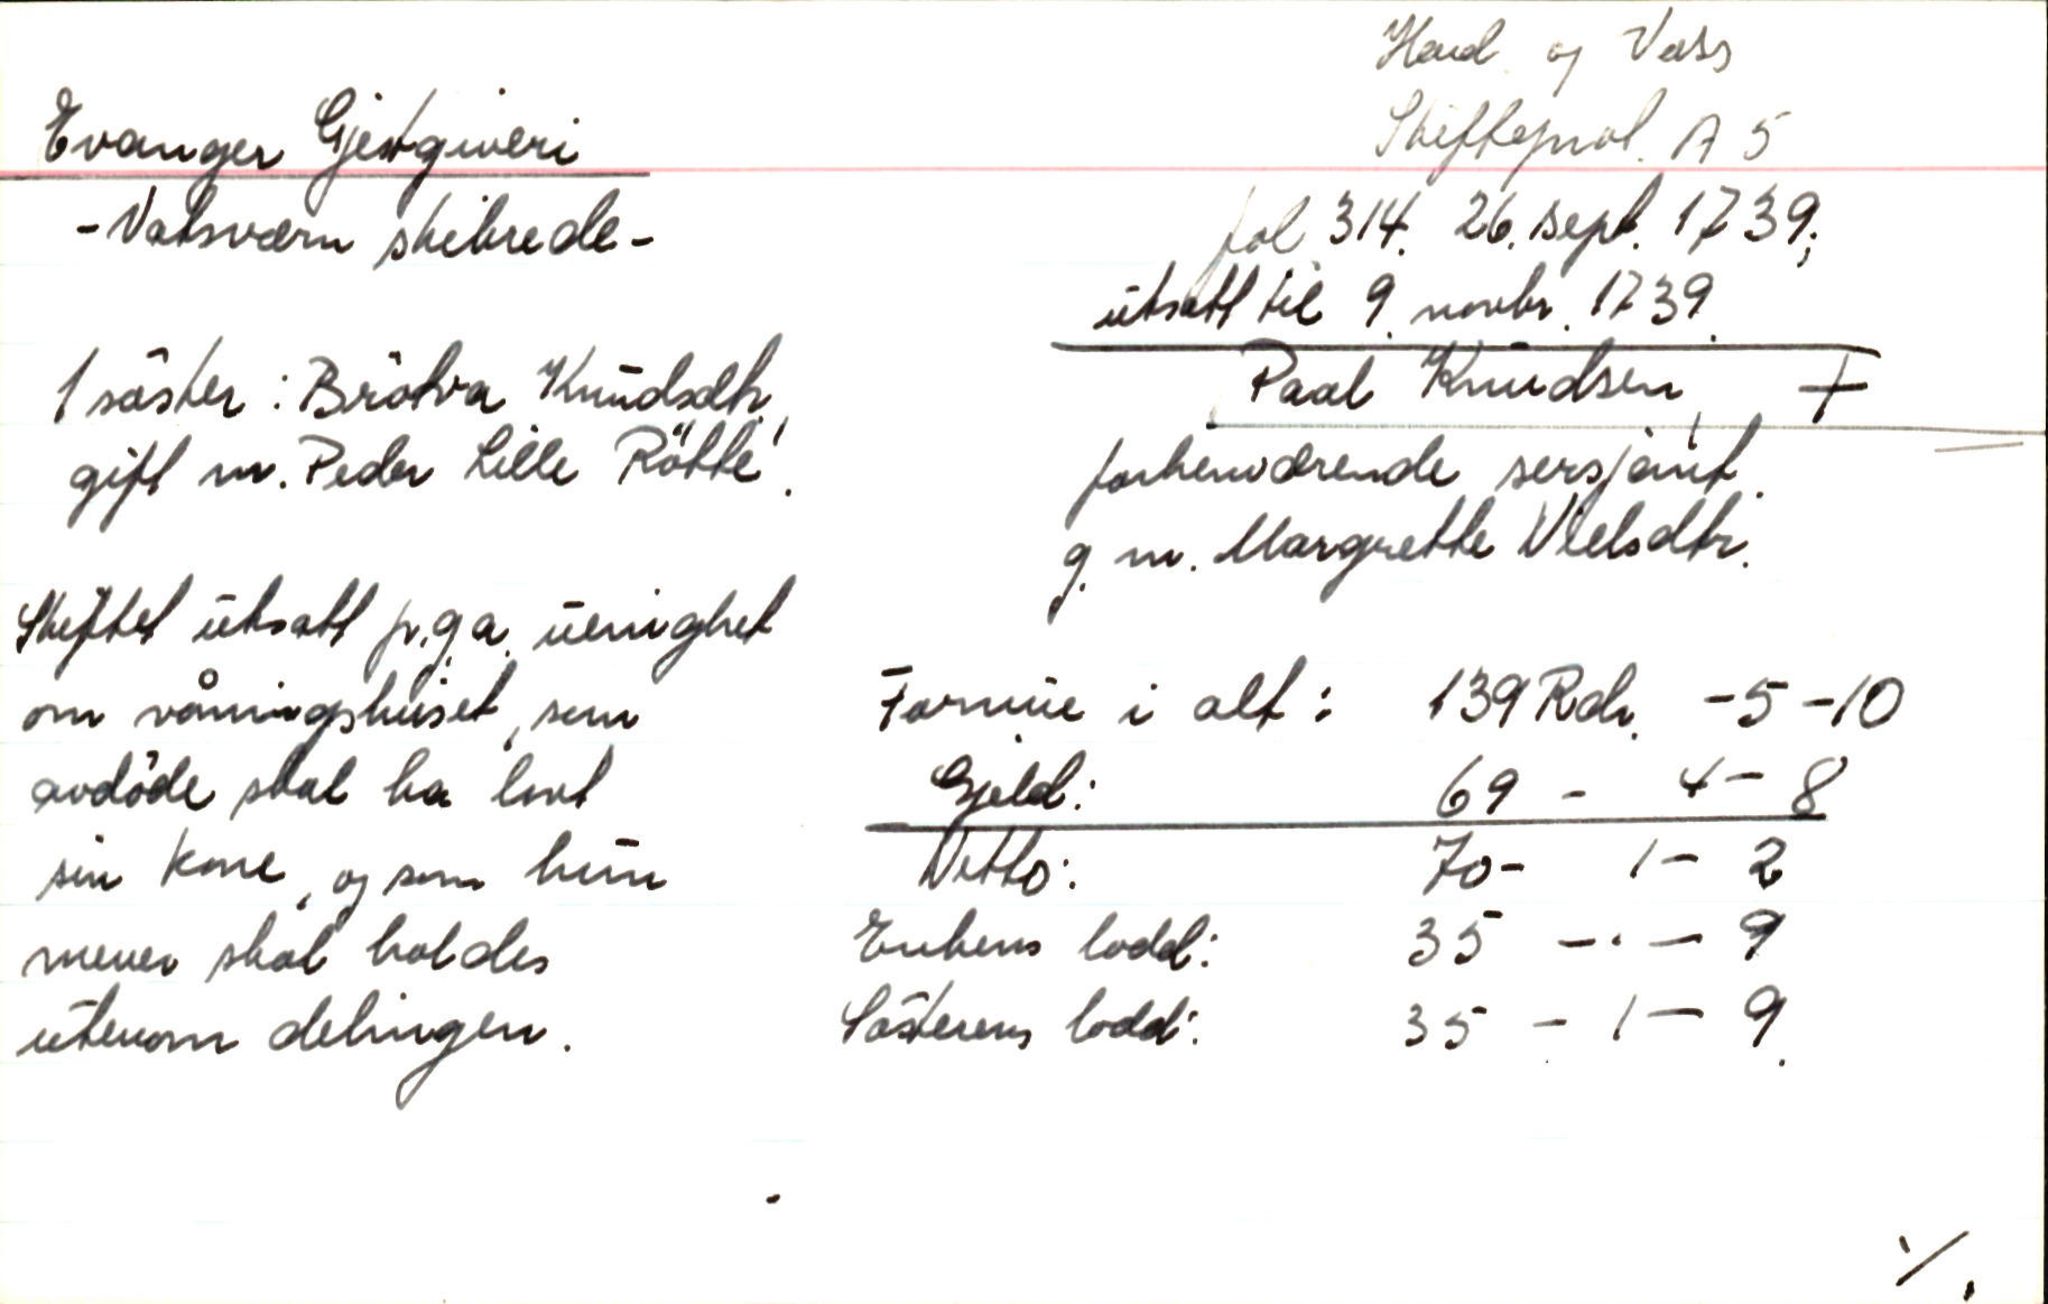 Hard. og Voss
Skifteprot. A 5
Evanger Gjestgiveri
- Vatsværn skibrede -
fol 314. 26. sept. 1739;
utsatt til 9. novbr. 1739.
1 søster: Brötva Knudsdtr,
gift m. Peder Lille Rötte'.
Paal Knudsen, †
forhenværende sersjant.
g. m. Margrette Nielsdtr.
Skiftet utsatt p.g.a. uenighet
om våningshuset, som
avdöde skal ha lovt
sin kone, og som hun
mener skal holdes
utenom delingen.
Formue i alt: 139 Rdr. - 5 - 10
Gjeld: 69 - 4 - 8
Netto: 70 - 1 - 2
Enkens lodd: 35 - . - 9
Søsterens lodd: 35 - 1 - 9.
·/.